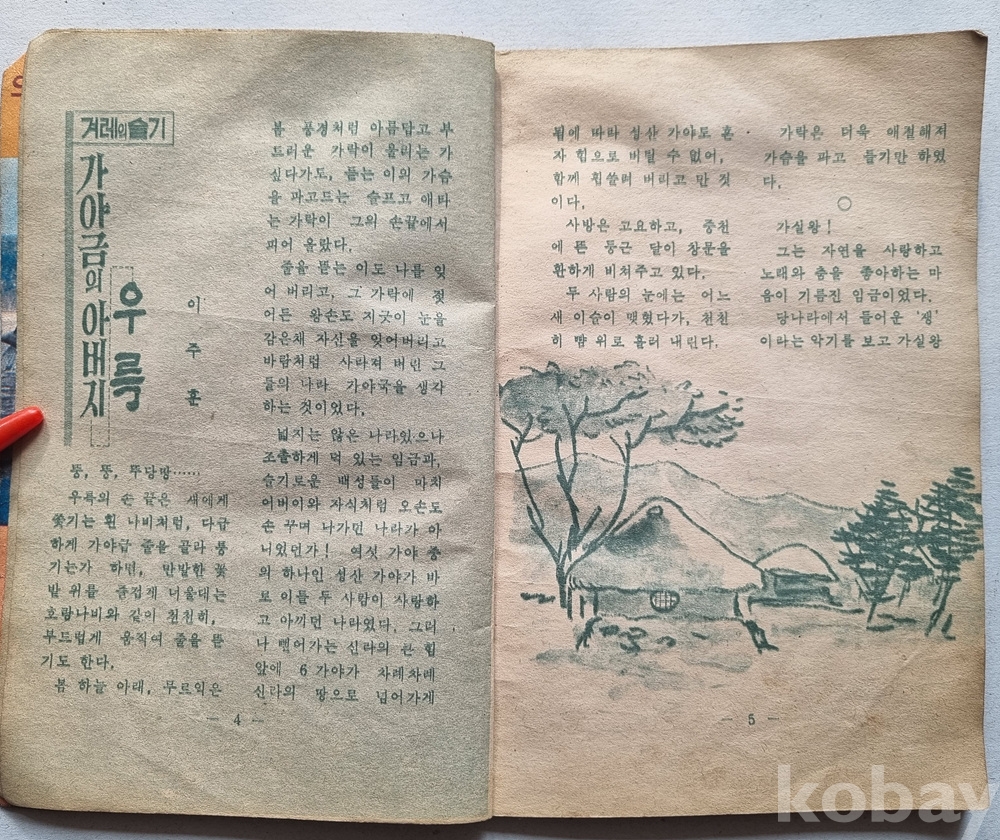 겨레의 슬기
가야금의 아버지
우륵
이주훈
퉁, 뚱, 뚜당땅……
우륵의 손 끝은 새에게
쫓기는 흰 나비처럼, 다급
하게 가야금 줄을 골라 퉁
기는가 하면, 만발한 꽃
밭 위를 즐겁게 너울대는
호랑나비와 같이 천천히,
부드럽게 움직여 줄을 뜯
기도 한다.
봄 하늘 아래, 무르익은
봄 풍경처럼 아름답고 부
드러운 가락이 울리는 가
싶다가도, 듣는 이의 가슴
을 파고드는 슬프고 애타
는 가락이 그의 손끝에서
피어 올랐다.
줄을 뜯는 이도 나를 잊
어 버리고, 그 가락에 젖
어든 왕손도 지긋이 눈을
감은채 자신을 잊어버리고
바람처럼 사라져 버린 그
들의 나라 가야국을 생각
하는 것이었다.
넓지는 않은 나라있으나
조촐하게 덕 있는 임금과,
슬기로운 백성들이 마치
어버이와 자식처럼 오손도
손 꾸며 나가던 나라가 아
니었던가! 여섯 가야 중
의 하나인 성산 가야가 바
로 이들 두 사람이 사랑하
고 아끼던 나라였다. 그러
나 뻗어가는 신라의 큰 힘
앞에 6가야가 차례차례
신라의 땅으로 넘어가게
— 4 —
됨에 따라 성산 가야도 혼
자 힘으로 버틸 수 없어,
함께 휩쓸려 버리고 만 것
이다.
사방은 고요하고, 중천
에 뜬 둥근 달이 창문을
환하게 비쳐주고 있다.
두 사람의 눈에는 어느
새 이슬이 맺혔다가, 천천
히 뺨 위로 흘러 내린다.
가락은 더욱 애절해져
가슴을 파고 들기만 하였
다.
○
가실왕!
그는 자연을 사랑하고
노래와 춤을 좋아하는 마
음이 기름진 임금이었다.
당나라에서 들어온 '쟁'
이라는 악기를 보고 가실왕
— 5 —
kobay